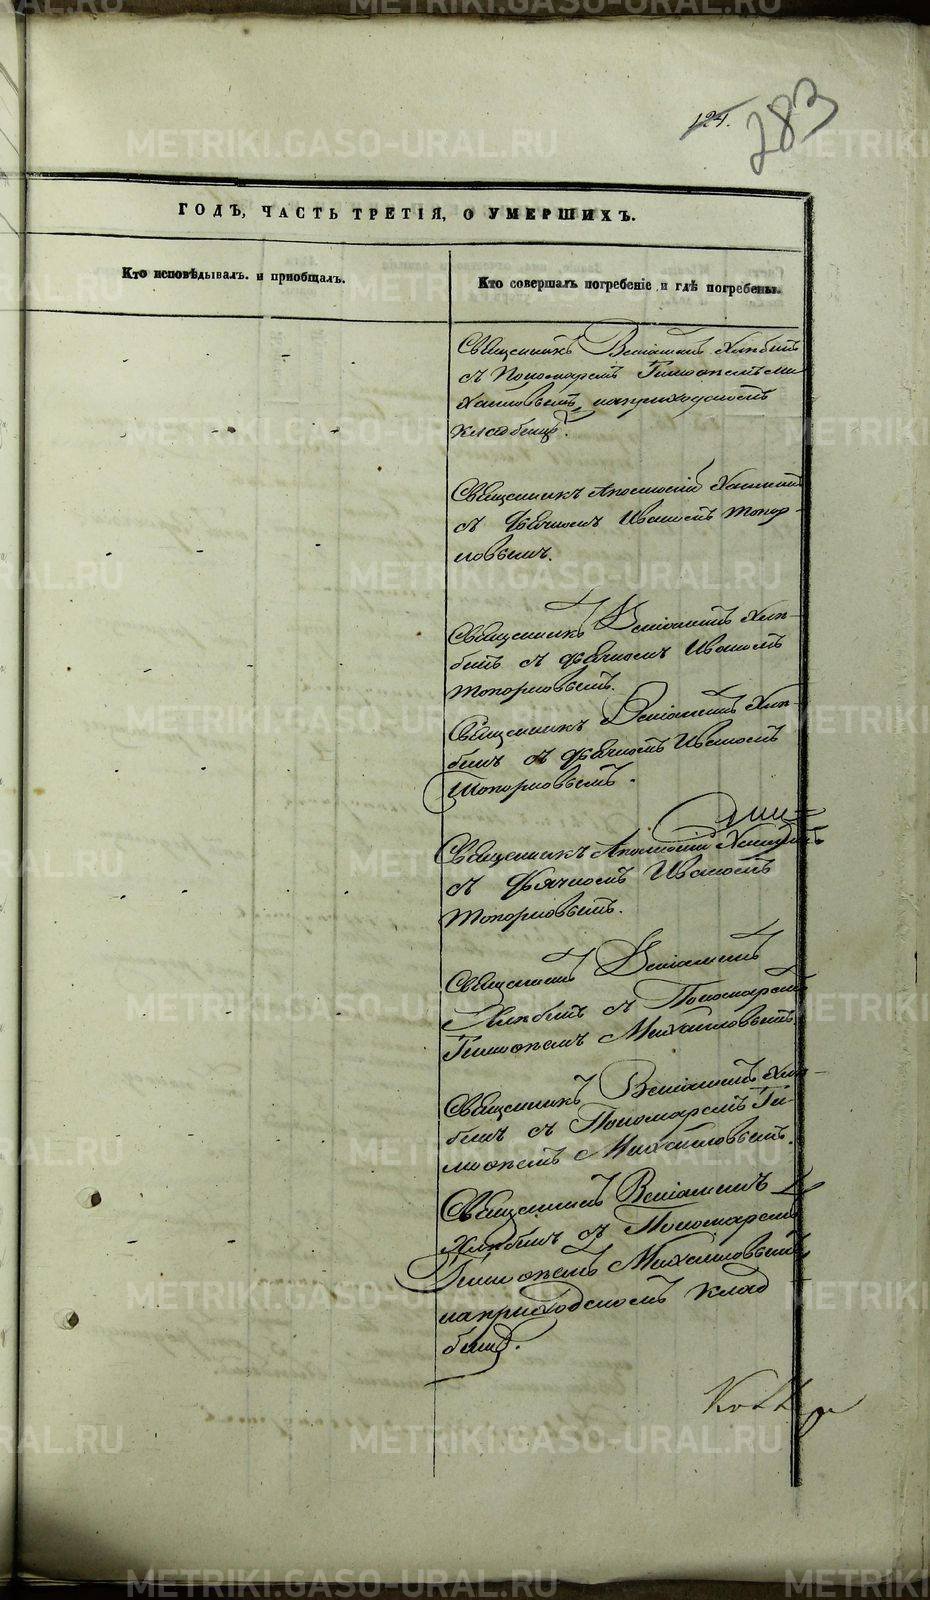 124.
283
ГОДЪ, ЧАСТЬ ТРЕТІЯ, О УМЕРШИХЪ.
Кто исповѣдывалъ и приобщалъ.
Кто совершалъ погребеніе и гдѣ погребены.
Священникъ Веніаминъ Хлѣбинъ
съ Пономаремъ Тимоѳемъ Ми
хайловымъ, наприходскомъ
кладбищѣ.
Священникъ Аполлоній
съ Дьячкомъ Иваномъ Топор-
ковымъ.
Священникъ Веніаминъ Хлѣ-
бинъ съ Дьячкомъ Иваномъ
Топорковымъ.
Священникъ Веніаминъ Хлѣ-
бинъ съ Дьячкомъ Иваномъ
Топорковымъ.
Священникъ Аполлоній
съ Дьячкомъ Иваномъ
Топорковымъ.
Священникъ Веніаминъ
Хлѣбинъ съ Пономаремъ
Тимоѳемъ Михайловымъ
Священникъ Веніаминъ Хлѣ-
бинъ съ Пономаремъ Ти-
моѳемъ Михайловымъ.
Священникъ Веніаминъ
Хлѣбинъ съ Пономаремъ
Тимоѳемъ Михайловымъ
наприходскомъ клад
бищѣ.